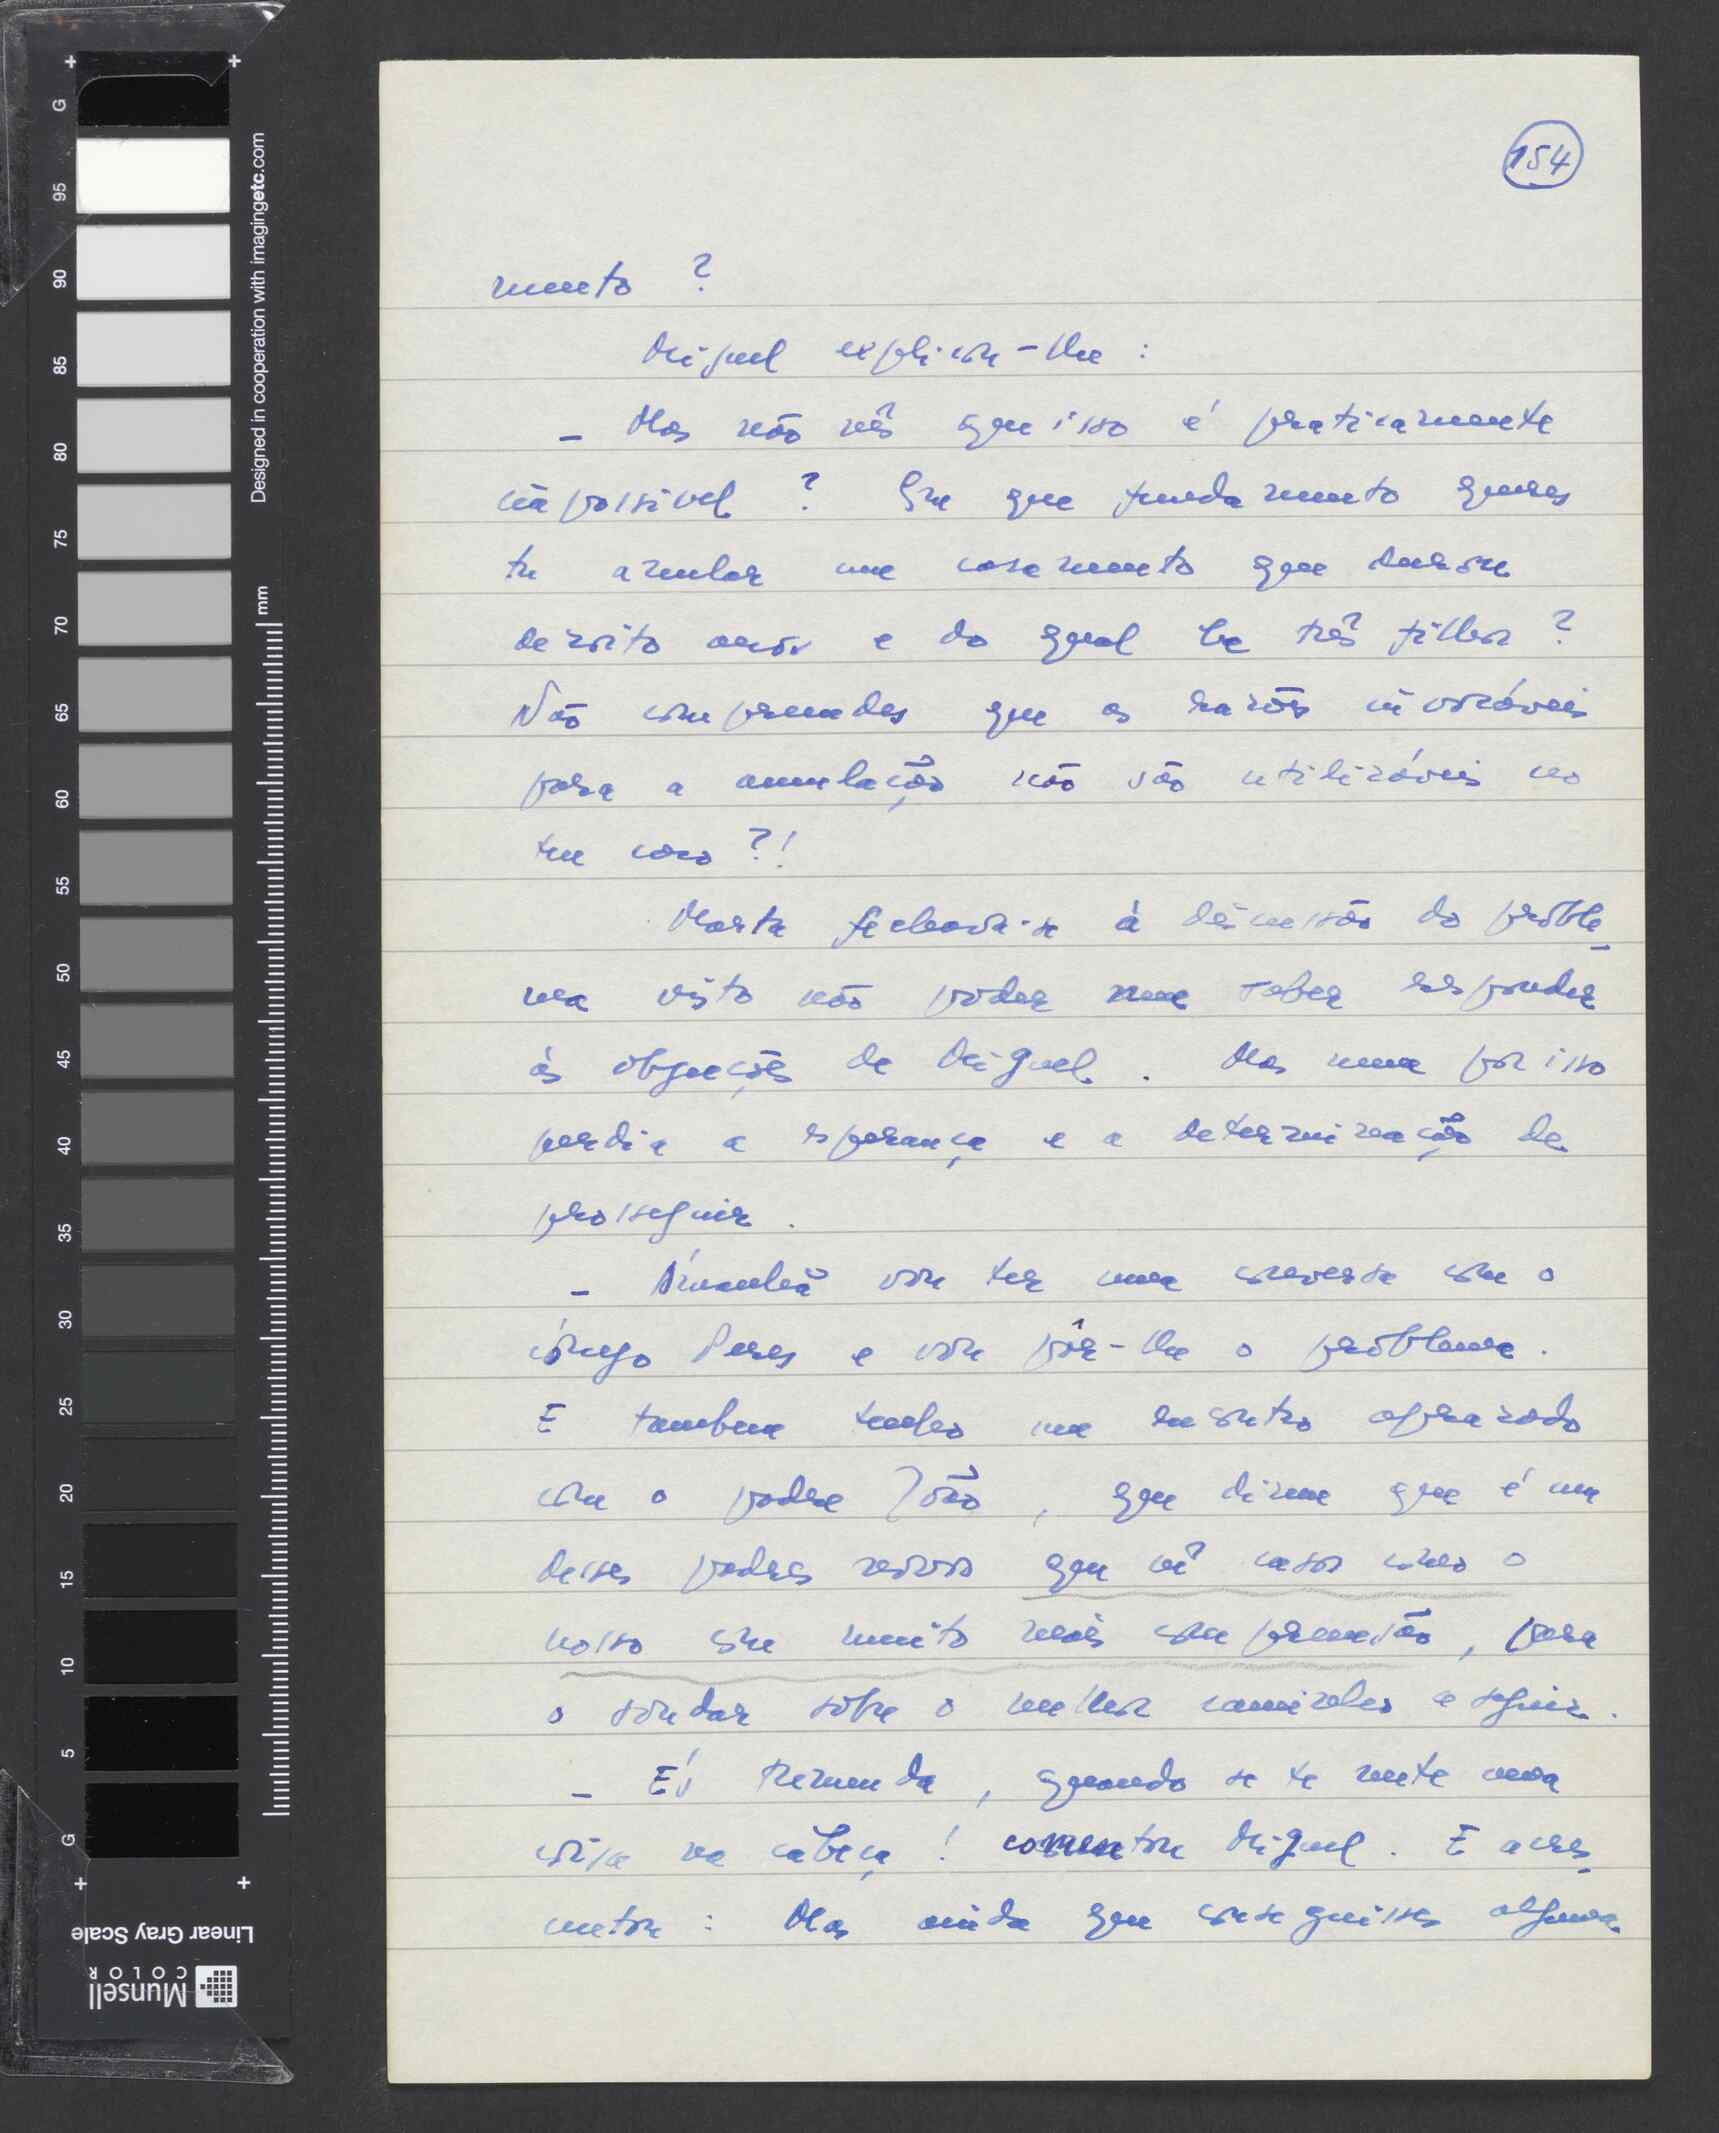 154
mento ?
Miguel explicou-lhe :
– Mas não vês que isso é praticamente
impossível ? Em que fundamento queres
tu anular um casamento que durou
dezoito anos e do qual há três filhos ?
Não compreendes que as razões invocáveis
para a anulação não são utilizáveis no
teu caso ?!
Marta fechava-se à discussão do proble-
ma visto não poder nem saber responder
às objecções de Miguel. Mas nem por isso
perdia a esperança e a determinação de
prosseguir.
– Amanhã vou ter uma conversa com o
cónego Peres e vou pôr-lhe o problema.
E também tenho um encontro aprazado
com o padre João, que dizem que é um
desses padres novos que vê casos como o
nosso com muito mais compreensão, para
o sondar sobre o melhor caminho a seguir.
– És tremenda, quando se te mete uma
coisa na cabeça ! comentou Miguel. E acres-
centou : Mas ainda que conseguisses alguma
G
95
90
85
80
75
70
65
60
55
50
45
40
35
30
25
20
15
10
5
G
Designed in cooperation with imagingetc.com
mm
Linear Gray Scale
Munsell
COLOR